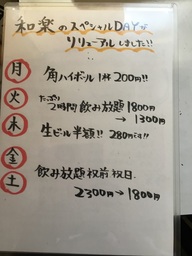 和楽のスペシャルDAYが
リニューアルしました!!
月 角ハイボール 1杯 200円!!
火 たっぷり
2時間飲み放題 1800円
→ 1300円
木 生ビール半額!! 280円です!!
金
土 飲み放題祝前祝日
2300円→1800円